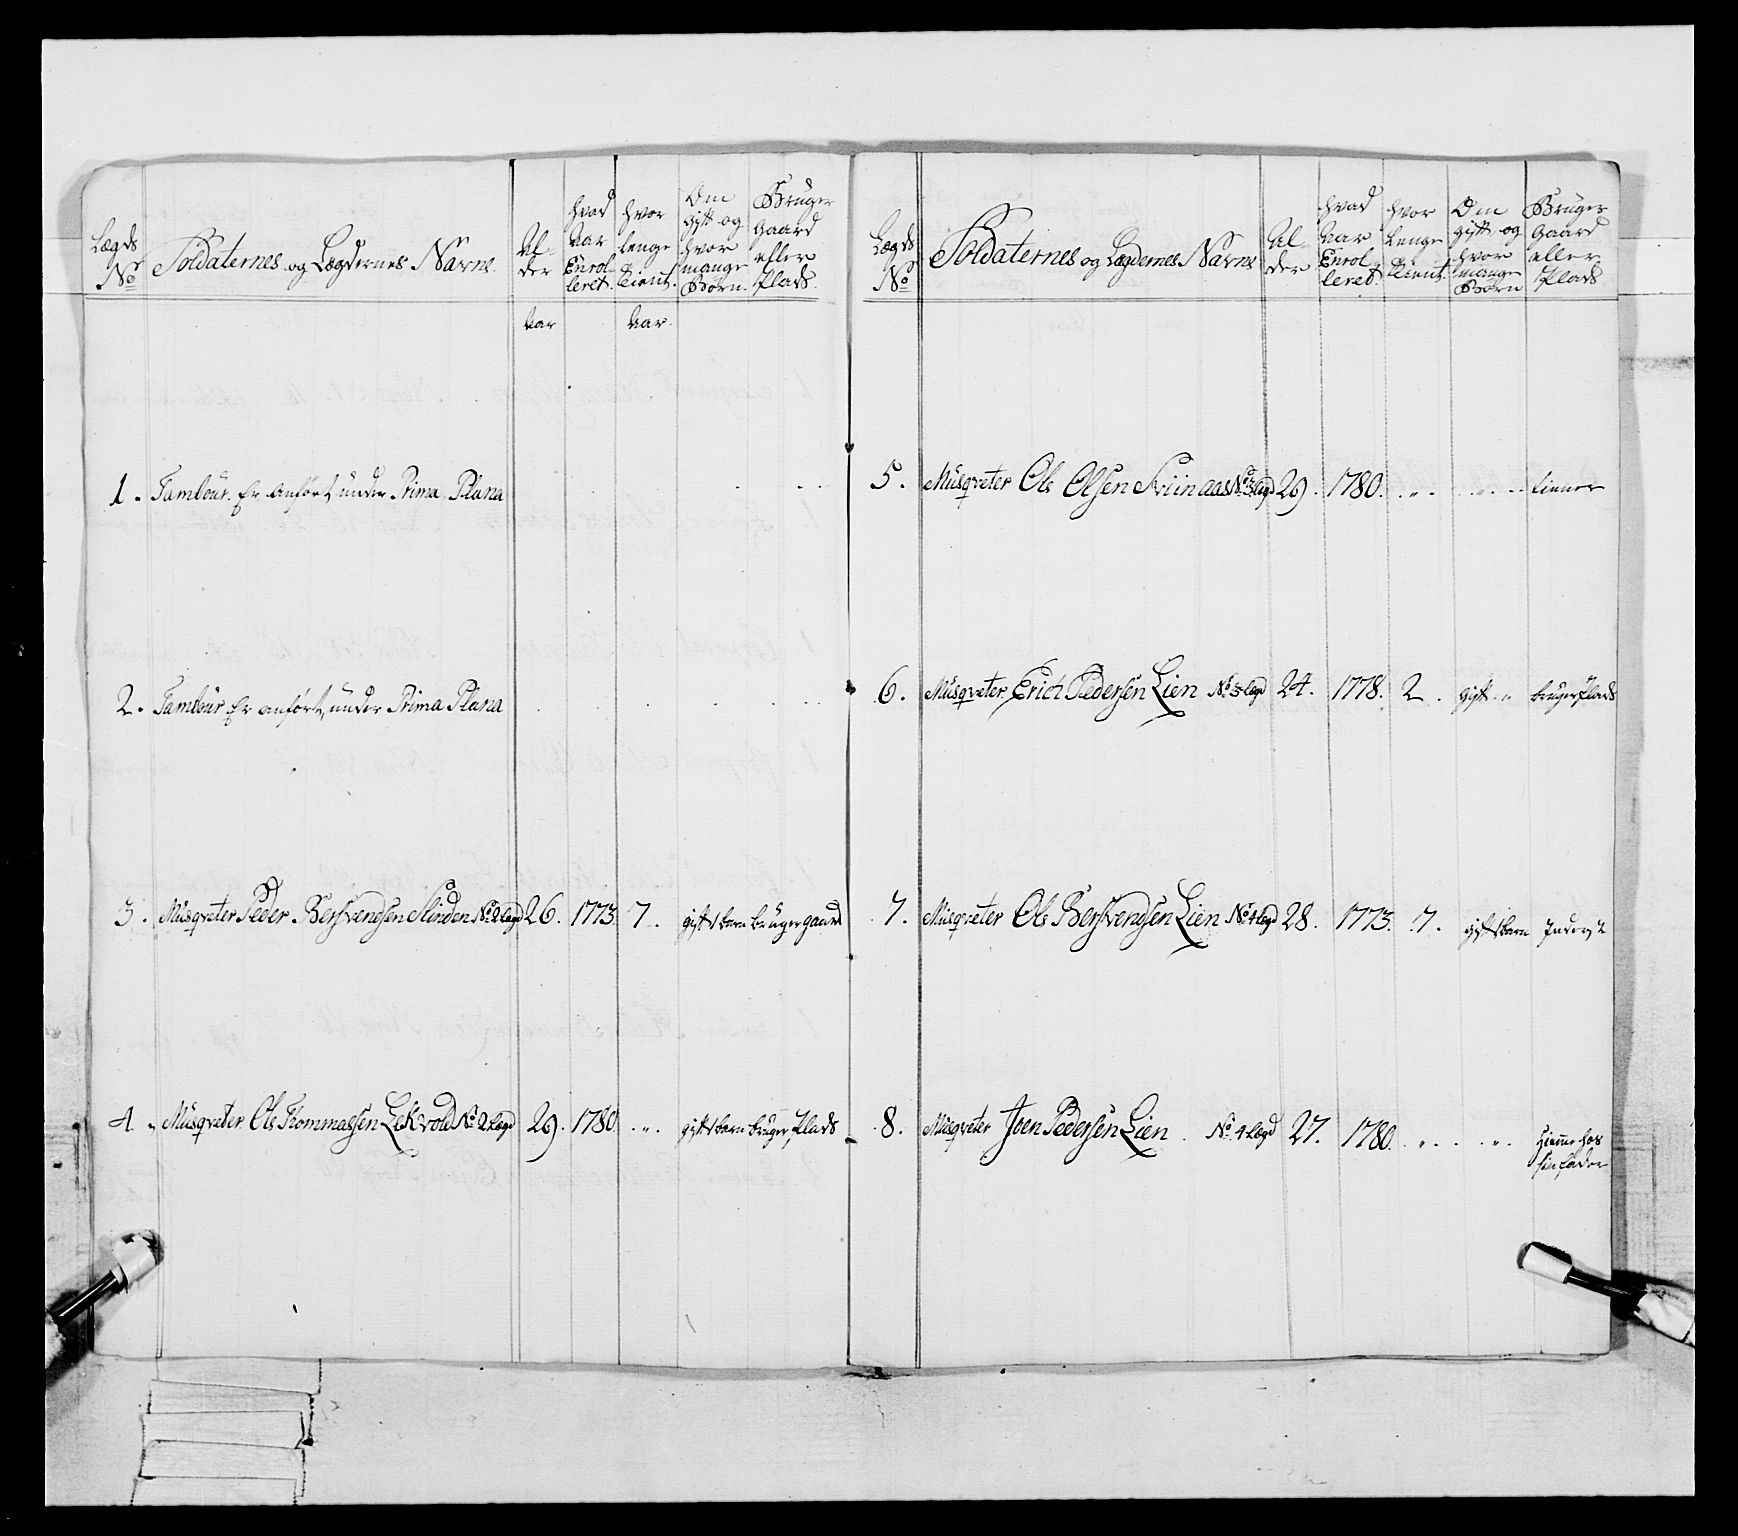 Lægds No
Soldaternes og Lægdernes Navne
Al-
der
hvad
Aar
Enrol-
leret
hvor
lenge
tient.
Om
gift og
hvor
mange
Børn.
Bruger
Gaard
eller
Plads.
Aar
Aar.
1. Tambour. Er anført under Prima Plana
2. Tambour Er anført under Prima Plana
3. Musqveter Peder Bersvendsen Slinden No 2 Lægd 26. 1773. 7. gift 1 barn bruger gaard
4. Musqveter Ole Thommassen Lekvold No 2 Lægd 29. 1780 . „ . gift 1 barn bruger Plads
Lægds No
Soldaternes og Lægdernes Navne
Al-
der
hvad
Aar
Enrol-
leret.
hvor
lenge
tient.
Om
gift og
hvor
mange
Børn
Bruger
Gaard
eller
Plads
5. Musqveter Ole Olsen No 3 Lægd 29. 1780. . „ . . „ . tienner
6. Musqveter Erich Pedersen Lien No 3 Lægd 24. 1778. 2. gift „ bruger Plads
7. Musqveter Ole Bersvendsen Lien No 4 Lægd 28. 1773. 7. gift 1 barn Inderst
8. Musqveter Joen Pedersen Lien No 4 Lægd 27. 1780. . „ . . „ . Hiemme hos
sin fader